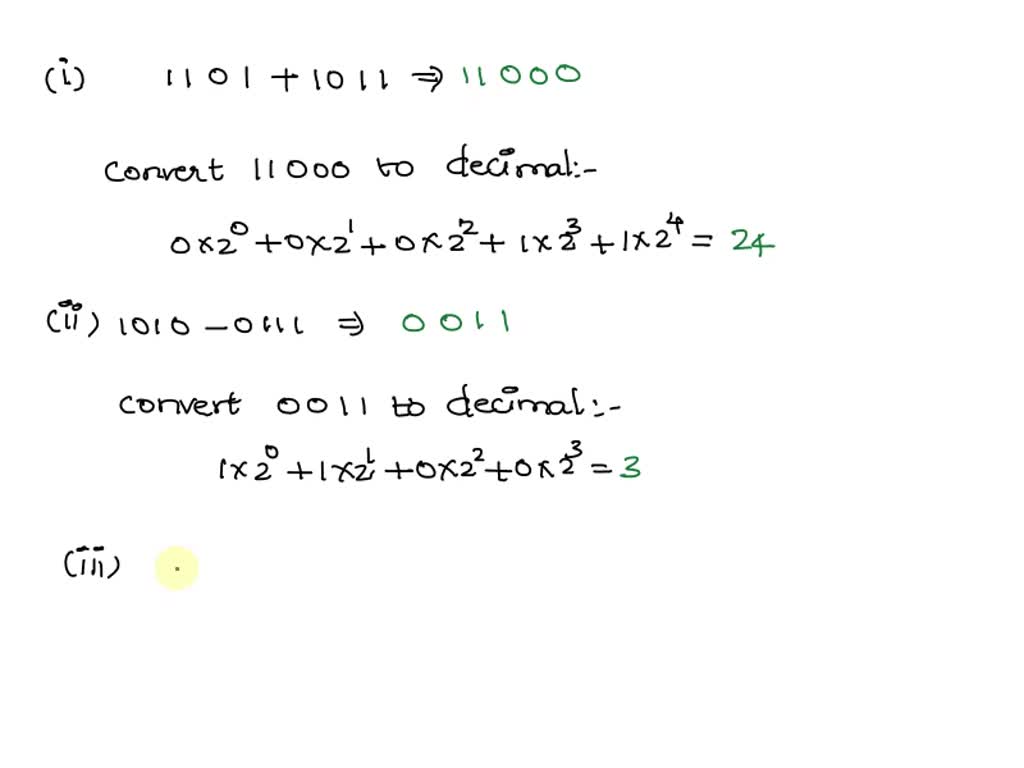 (i) 1101 + 1011 ⇒ 11000
convert 11000 to decimal:-
0×2⁰ + 0×2¹ + 0×2² + 1×2³ + 1×2⁴ = 24
(ii) 1010 – 0111 ⇒ 0011
convert 0011 to decimal:-
1×2⁰ + 1×2¹ + 0×2² + 0×2³ = 3
(iii)